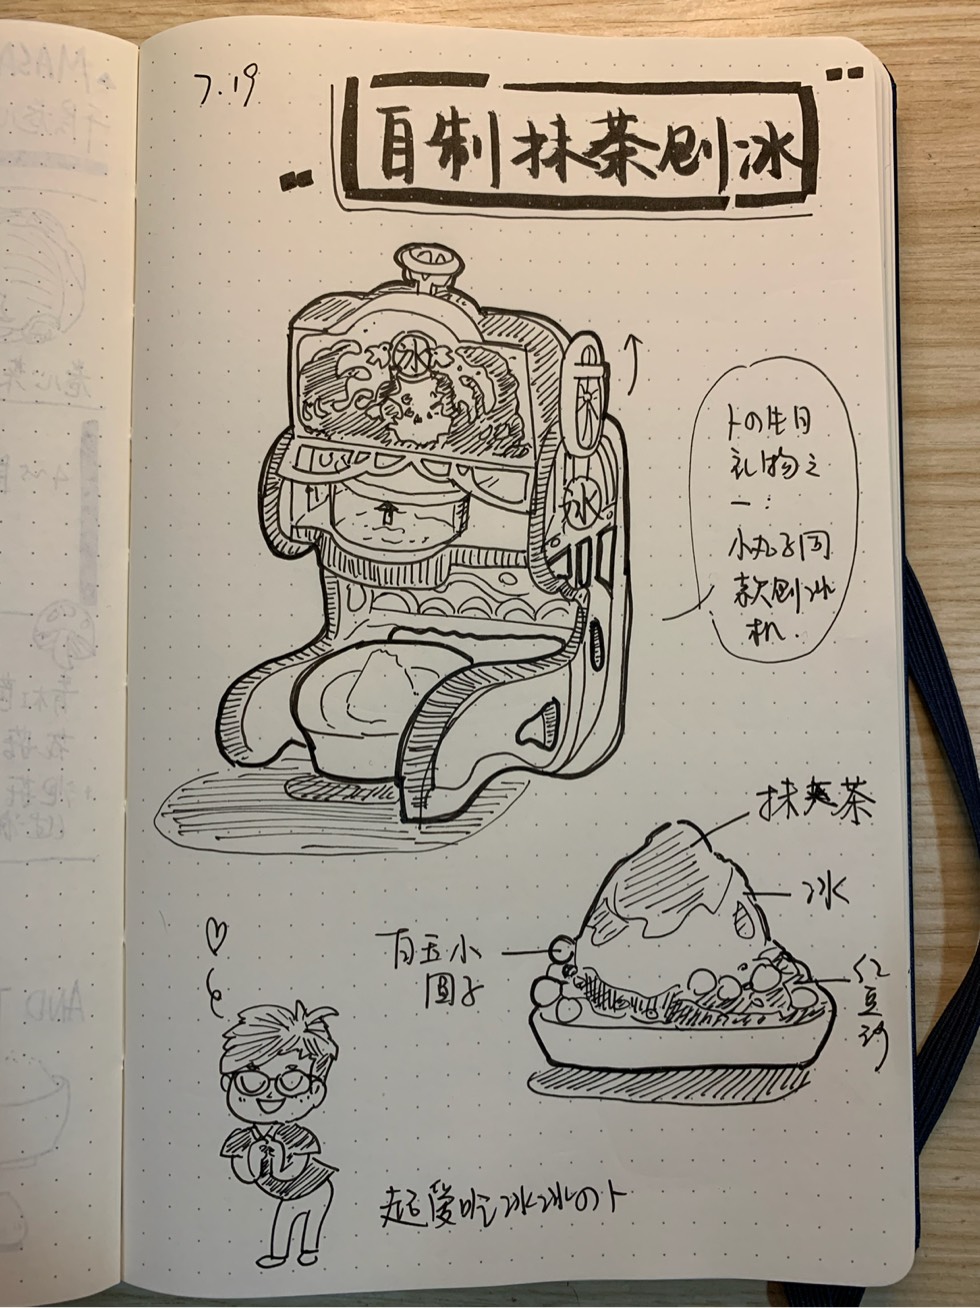 7.19
自制抹茶刨冰
冰
茶
冰
卜の生日
礼物之
一:
小丸子同
款刨冰
机.
抹茶
冰
白玉小
圆子
红
豆
沙
超爱吃冰冰の卜